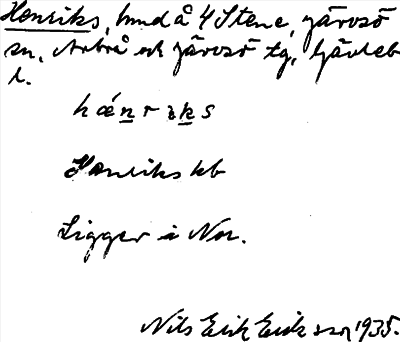 Henriks, hmd å 4 Stene, Järvsö
sn, Arbrå och Järvsö tg, Gävleb
l.
hǽnrıks
Henriks hb
Ligger i Nor.
Nils Erik Eriksson 1935.